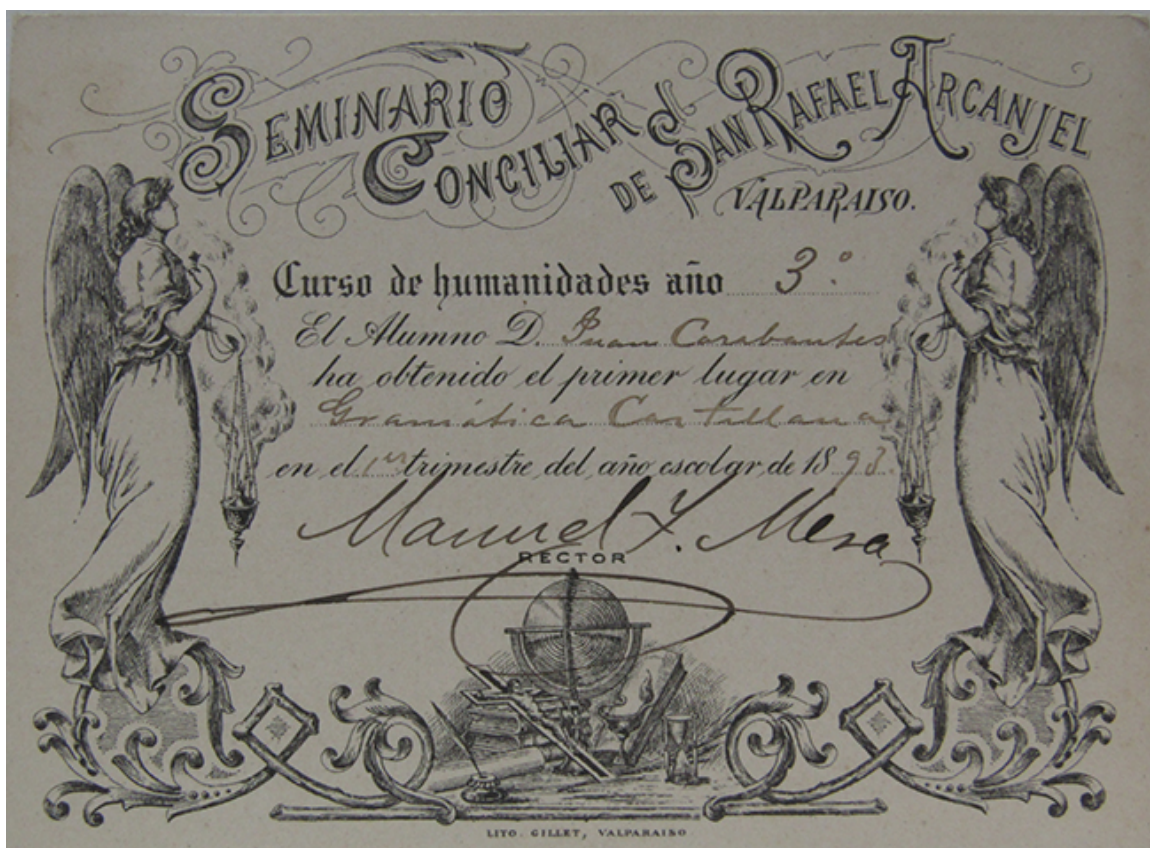 SEMINARIO
CONCILIAR DE SAN RAFAEL ARCANJEL
VALPARAISO.
Curso de humanidades año 3º
El Alumno D. Juan Carabantes
ha obtenido el primer lugar en
Gramática Castillana
en el 1er trimestre del año escolar de 1893.
Manuel T. Mesa
RECTOR
LITO. GILLET, VALPARAISO